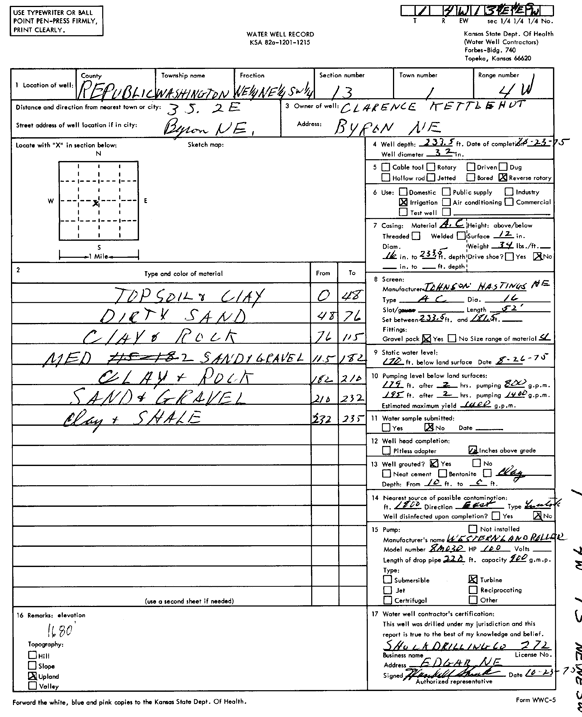 USE TYPEWRITER OR BALL
POINT PEN-PRESS FIRMLY,
PRINT CLEARLY.
WATER WELL RECORD
KSA 82a-1201-1215
T R EW sec 1/4 1/4 1/4 No.
Kansas State Dept. Of Health
(Water Well Contractors)
Forbes-Bldg. 740
Topeka, Kansas 66620
1 Location of well: County REPUBLIC Township name WASHINGTON Fraction NE¼ NE¼ SW¼ Section number 13 Town number 1 Range number 4W
Distance and direction from nearest town or city: 3S. 2E
Street address of well location if in city: Byron NE.
3 Owner of well: CLARENCE KETTLEHUT
Address: BYRON NE
Locate with "X" in section below:
Sketch map:
N
W X E
S
1 Mile
2 Type and color of material From To
TOPSOIL & CLAY 0 48
DIRTY SAND 48 76
CLAY & ROCK 76 115
MED SAND & GRAVEL 115 182
CLAY + ROCK 182 210
SAND & GRAVEL 210 232
Clay + SHALE 232 235
(use a second sheet if needed)
4 Well depth: 233.5 ft. Date of completion 10-23-75
Well diameter 32 in.
5 Cable tool Rotary Driven Dug
Hollow rod Jetted Bored X Reverse rotary
6 Use: Domestic Public supply Industry
X Irrigation Air conditioning Commercial
Test well
7 Casing: Material A.C Height: above/below
Threaded Welded Surface 12 in.
Diam. Weight 34 lbs./ft.
16 in. to 233.5 ft. depth Drive shoe? Yes X No
in. to ft. depth
8 Screen:
Manufacturer JOHNSON HASTINGS NE
Type AC Dia. 16
Slot/gauze Length 52'
Set between 233.5 ft. and 181.5 ft.
Fittings:
Gravel pack X Yes No Size range of material
9 Static water level:
170 ft. below land surface Date 8-26-75
10 Pumping level below land surfaces:
179 ft. after 2 hrs. pumping 800 g.p.m.
195 ft. after 2 hrs. pumping 1400 g.p.m.
Estimated maximum yield 1400 g.p.m.
11 Water sample submitted:
Yes X No Date
12 Well head completion:
Pitless adapter 12 Inches above grade
13 Well grouted? X Yes No
Neat cement Bentonite Clay
Depth: From 10 ft. to 0 ft.
14 Nearest source of possible contamination:
ft. 1800 Direction East Type
Well disinfected upon completion? Yes X No
15 Pump: Not installed
Manufacturer's name WESTERN LAND ROLLER
Model number HP 100 Volts
Length of drop pipe 220 ft. capacity 900 g.m.p.
Type:
Submersible X Turbine
Jet Reciprocating
Certrifugal Other
16 Remarks: elevation
1680'
Topography:
Hill
Slope
X Upland
Valley
17 Water well contractor's certification:
This well was drilled under my jurisdiction and this
report is true to the best of my knowledge and belief.
SHUCK DRILLING CO 272
Business name License No.
Address EDGAR NE
Signed Date 10-23-75
Authorized representative
Forward the white, blue and pink copies to the Kansas State Dept. Of Health.
Form WWC-5
1
4W
13
NE NE SW